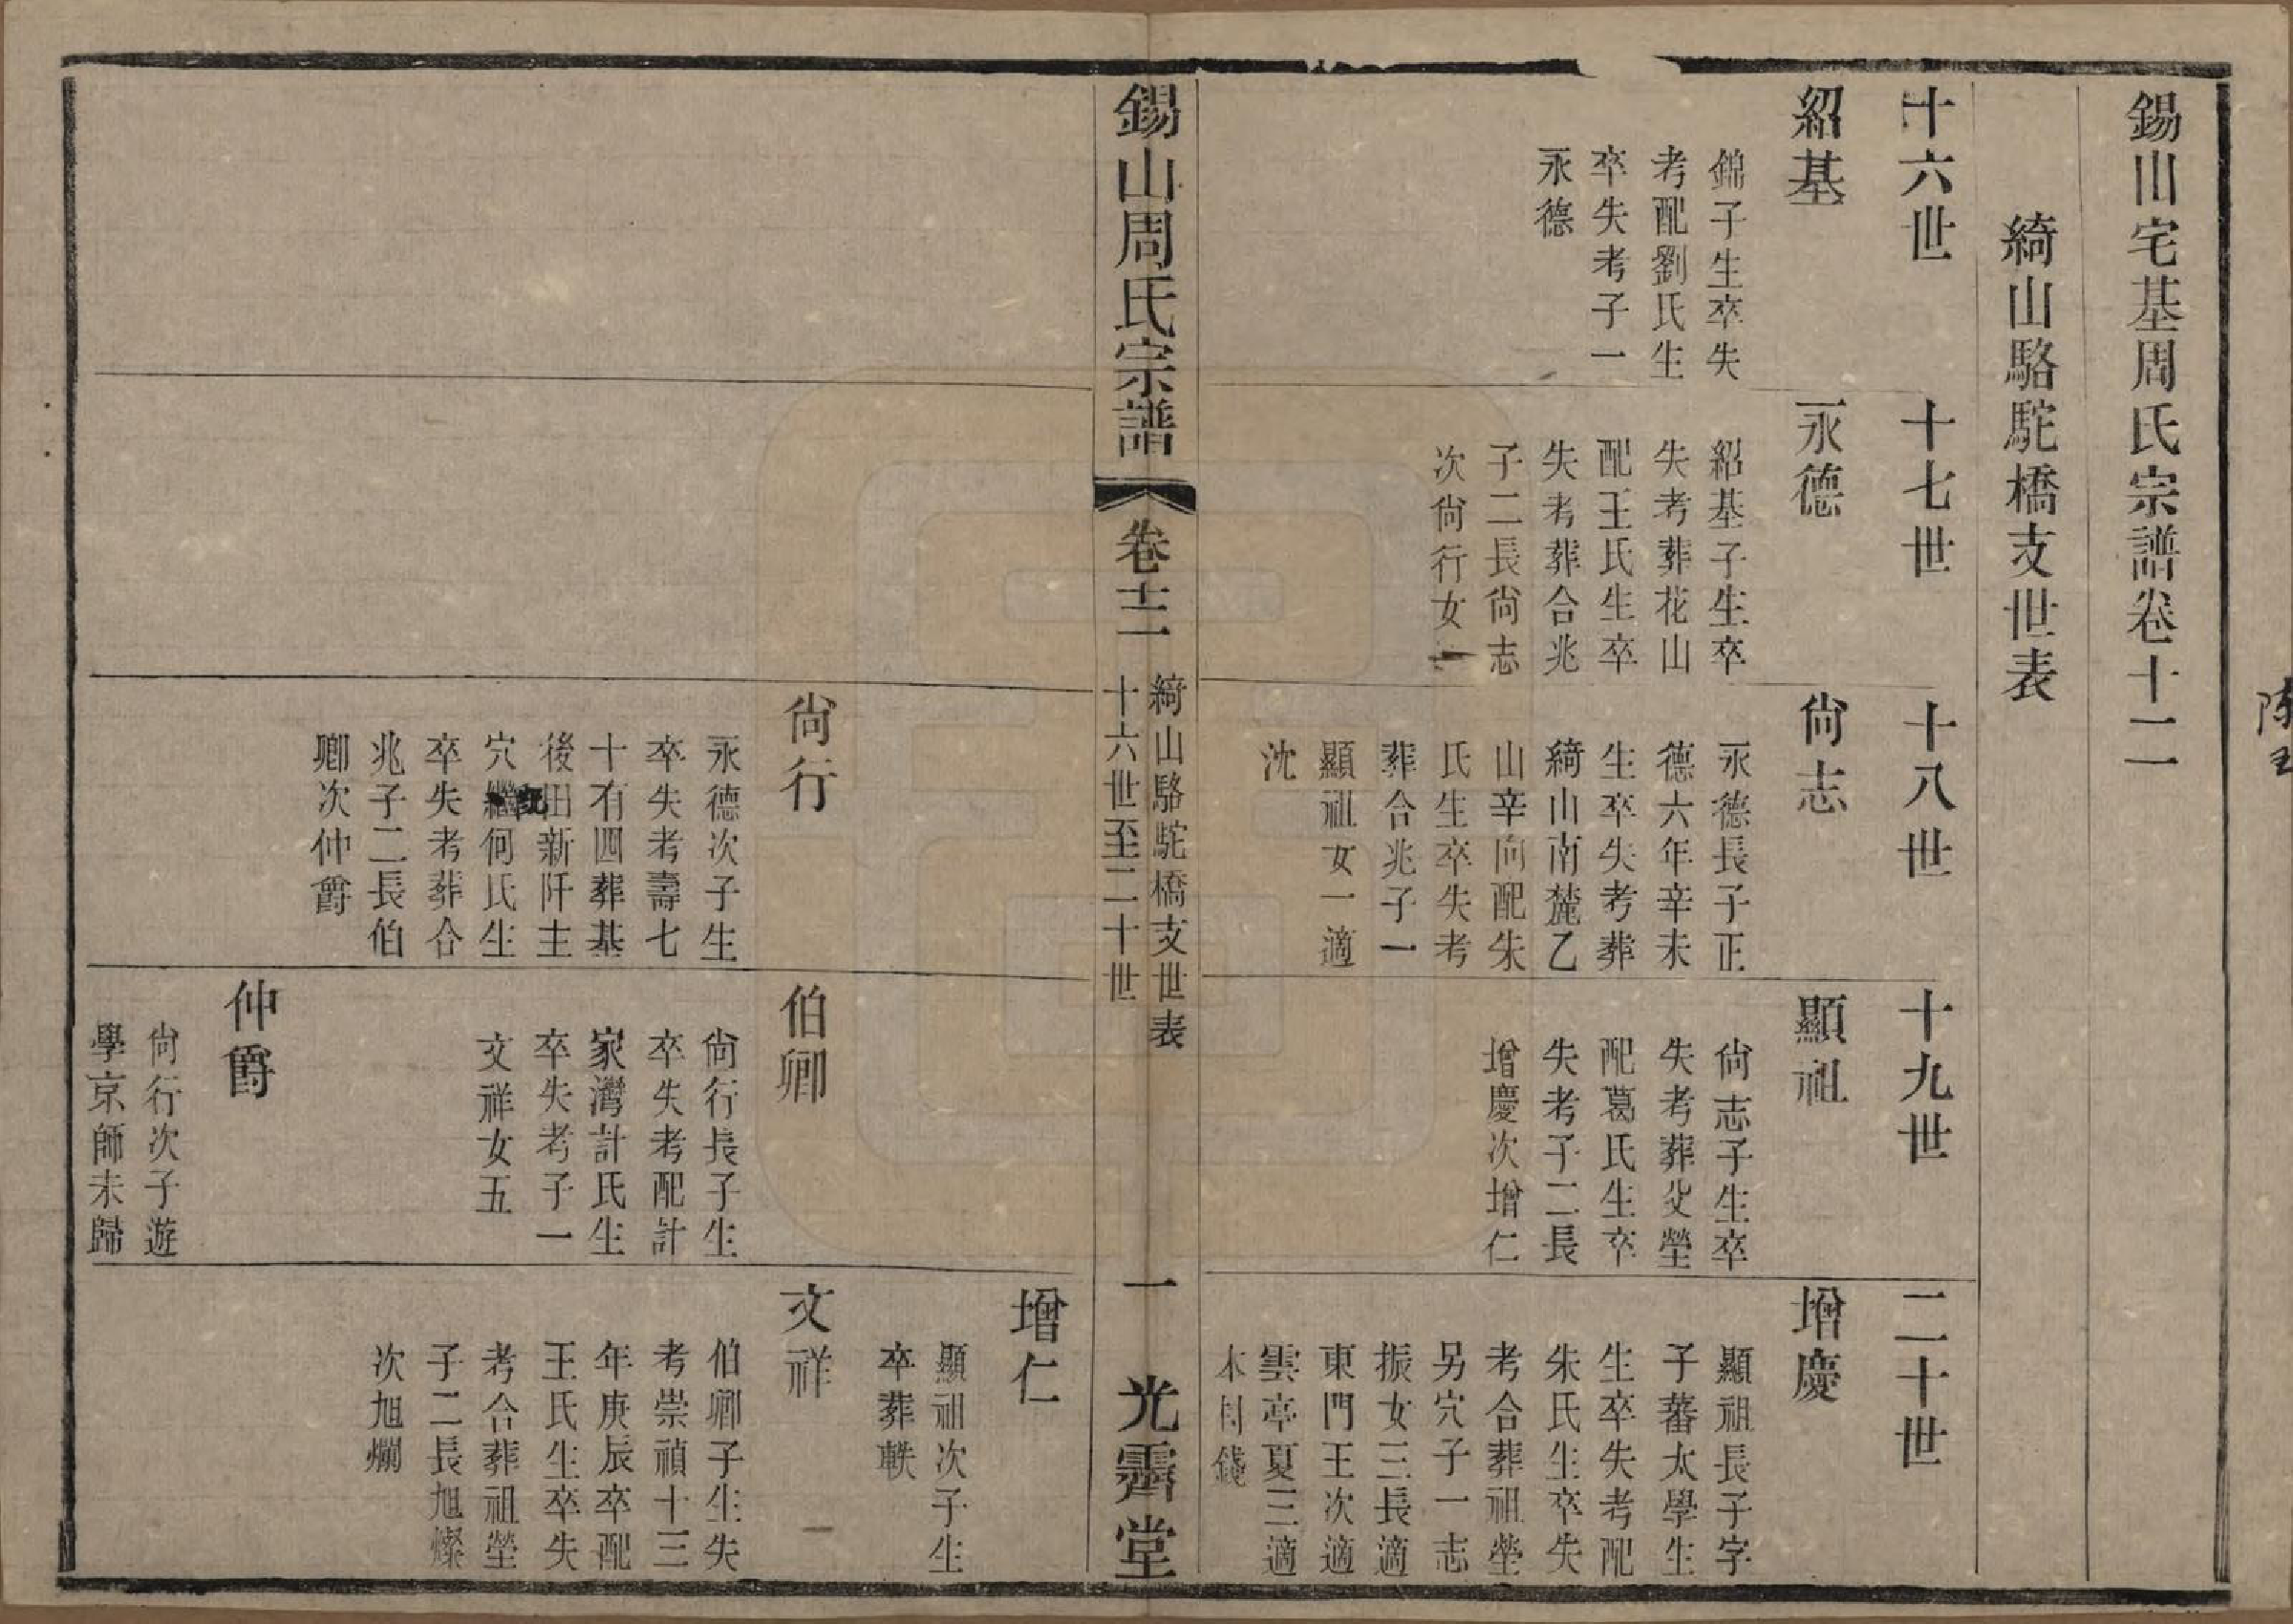 錫山宅基周氏宗譜卷十二
綺山駱駝橋支世表
十六世
十七世
十八世
十九世
二十世
紹基
錦子生卒失
考配劉氏生
卒失考子一
永德
永德
紹基子生卒
失考葬花山
配王氏生卒
失考葬合兆
子二長尙志
次尙行女一
尙志
永德長子正
德六年辛未
生卒失考葬
綺山南麓乙
山辛向配朱
氏生卒失考
葬合兆子一
顯祖女一適
沈
顯祖
尙志子生卒
失考葬父塋
配葛氏生卒
失考子二長
增慶次增仁
增慶
顯祖長子字
子蕃太學生
生卒失考配
朱氏生卒失
考合葬祖塋
另穴子一志
振女三長適
東門王次適
雲亭夏三適
本封錢
錫山周氏宗譜
卷十二
綺山駱駝橋支世表
十六世至二十世
一
光霽堂
增仁
顯祖次子生
卒葬軼
尙行
永德次子生
卒失考壽七
十有四葬基
後田新阡主
穴繼何氏生
卒失考葬合
兆子二長伯
卿次仲爵
伯卿
尙行長子生
卒失考配計
家灣計氏生
卒失考子一
文祥女五
文祥
伯卿子生失
考崇禎十三
年庚辰卒配
王氏生卒失
考合葬祖塋
子二長旭燦
次旭爛
仲爵
尙行次子遊
學京師未歸